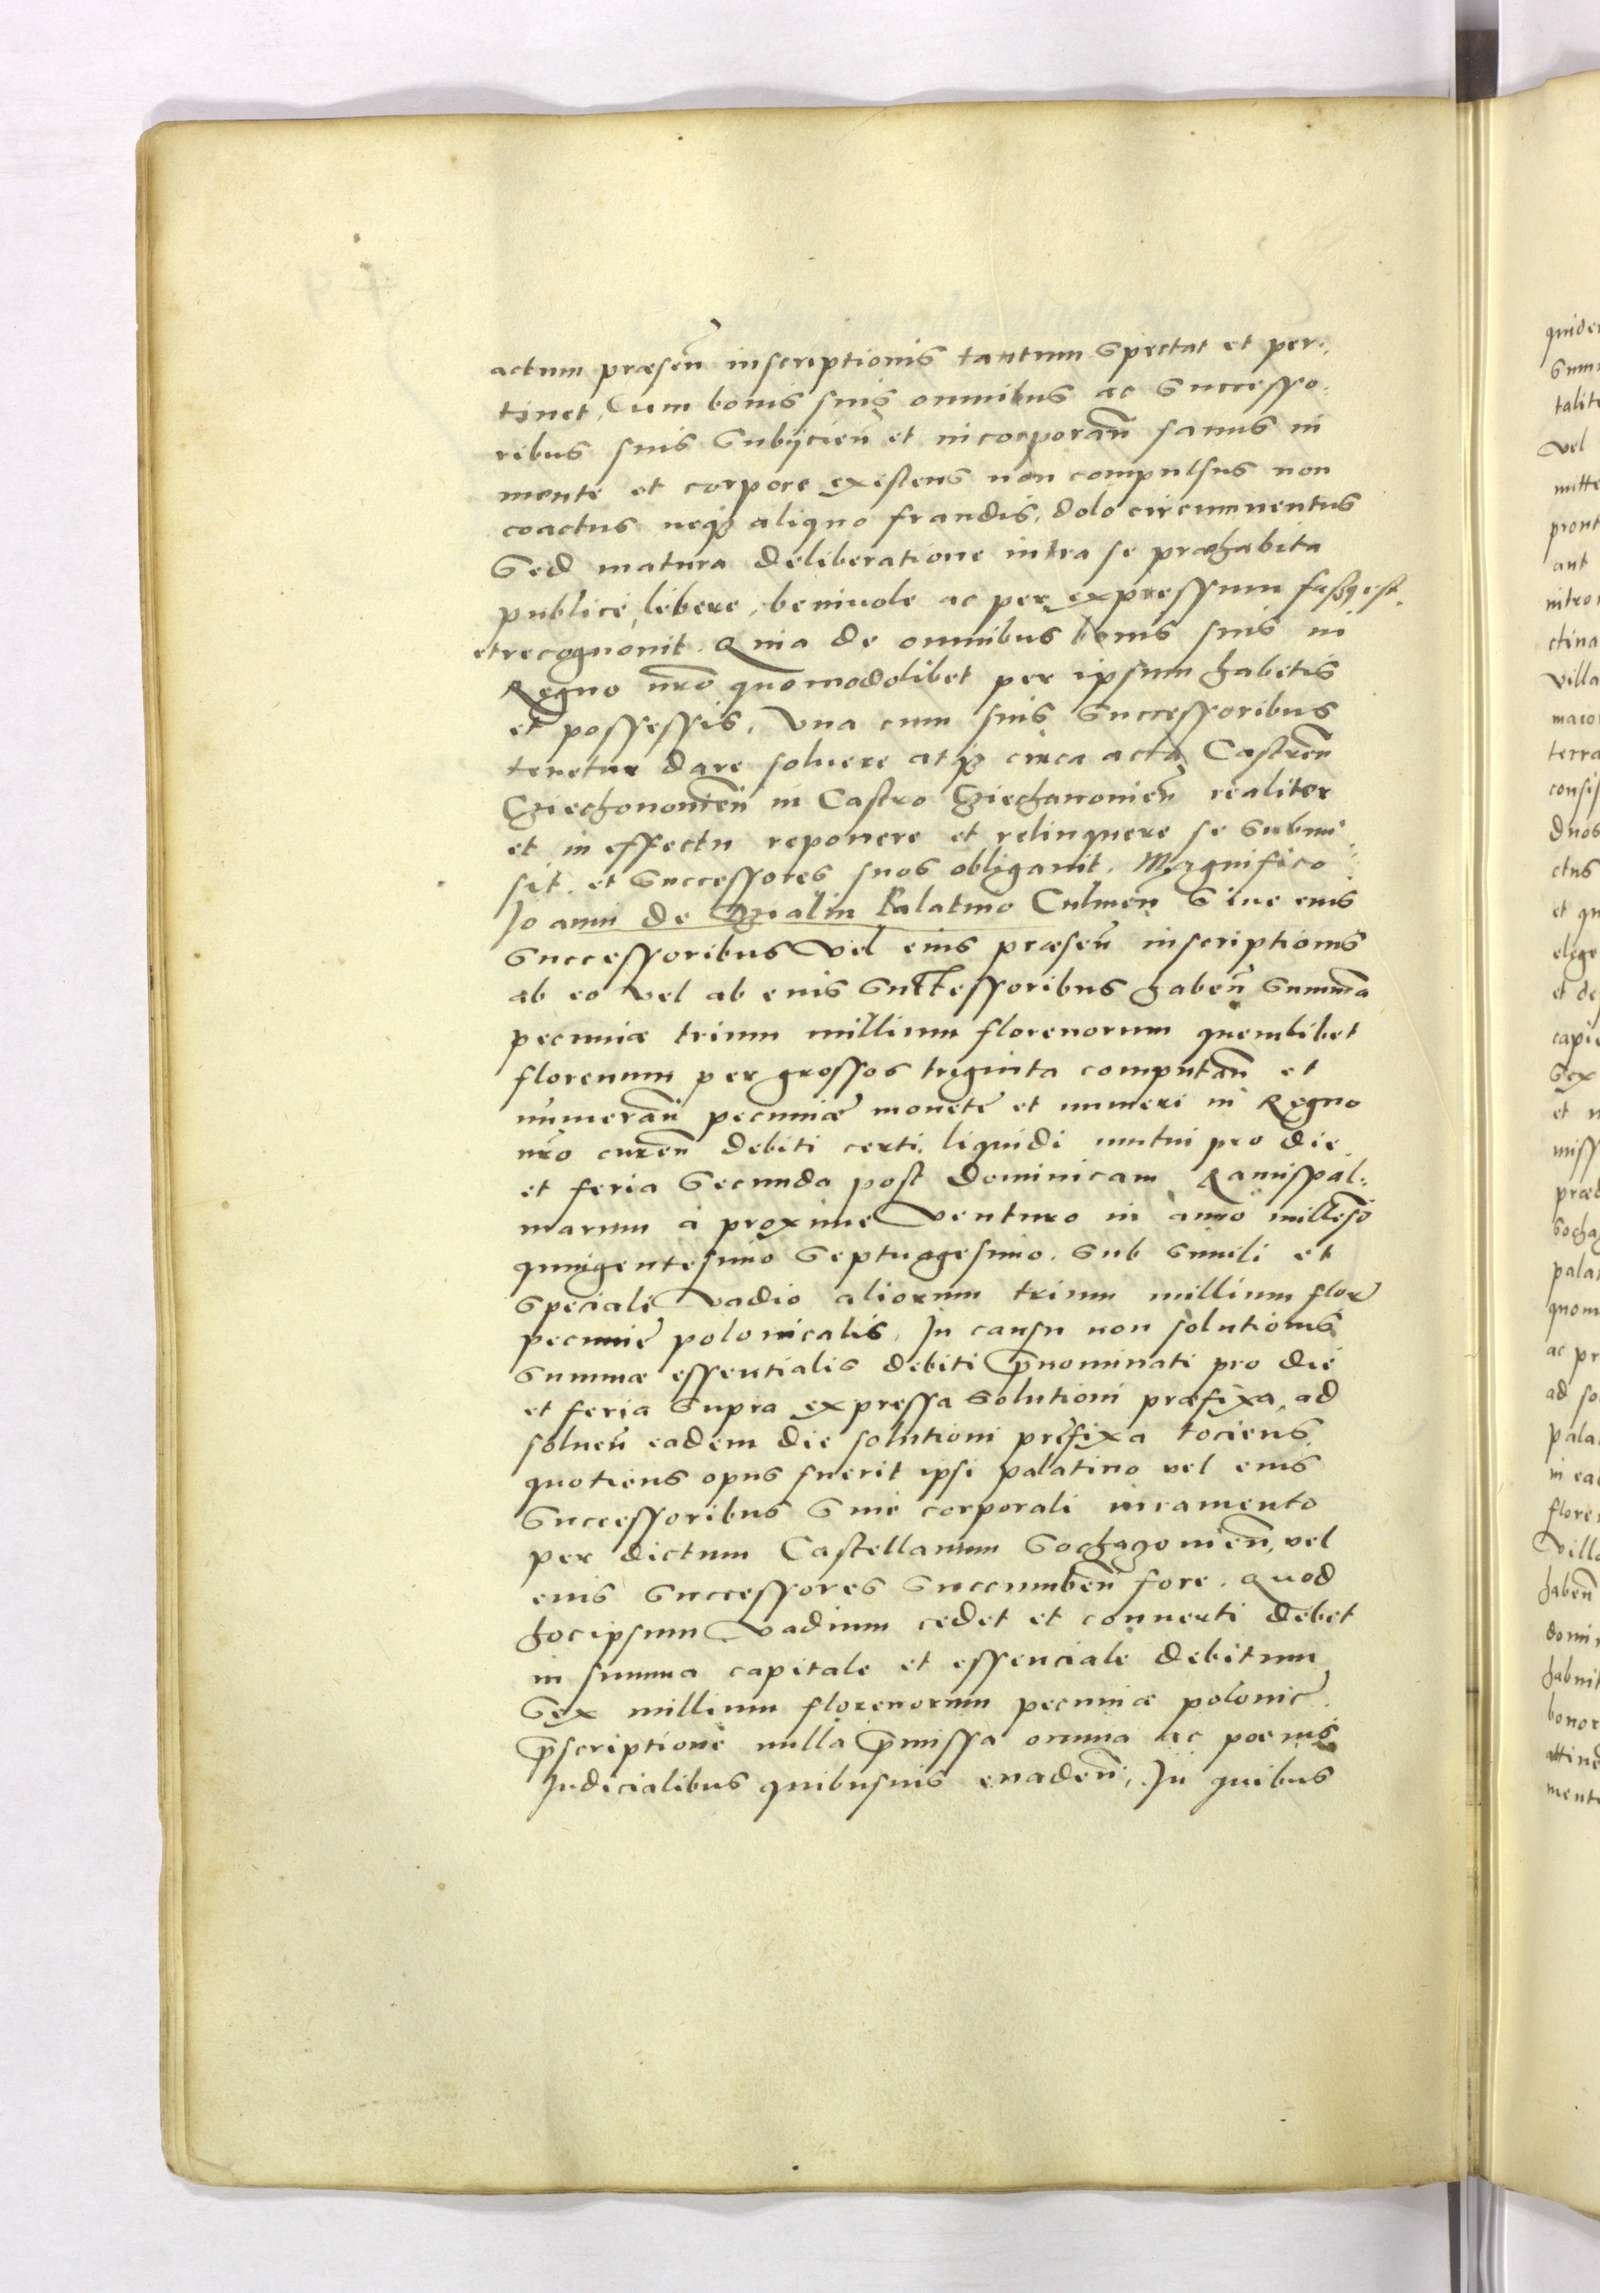 actum præsen̄ inscriptionis tantum spectat et per:
tinet, Cum bonis suis omnibus ac successo:
ribus suis subijcien̄ et incorporan̄ sanus in
mente et corpore existens non compulsus non
coactus neq₃ aliquo fraudis, dolo circumuentus
Sed matura deliberatione intra se præhabita
publice, libere, beniuole ac per expressum fassus est.
et recognouit. Quia de omnibus bonis suis in
Regno nr̄o quomodolibet per ipsum habitis
et possessis, Vna cum suis successoribus
tenetur dare soluere atq₃ circa acta Castren̄
Cziechonouien̄ in Castro Cziechanouien̄ realiter
et in effectu reponere et relinquere se submi:
sit. et successores suos obligauit. Magnifico
Joanni de Dzialin Palatino Culmen̄ Siue eius
successoribus Vel eius præsen̄ inscriptionis
ab eo vel ab eius successoribus haben̄ summa
pecuniæ trium millium florenorum quemlibet
florenum per grossos triginta computan̄ et
numeran̄ pecuniæ monetę et numeri in Regno
nr̄o curen̄ debiti certi, liquidi mutui pro die
et feria secunda post Dominicam Ramispal:
marum a proxime Venturo in anno millesō
quingentesimo septuagesimo. sub simili et
speciali Vadio aliorum trium millium flor
pecunię polonicalis, In causu non solutionis
summæ essentialis debiti p̄nominati pro die
et feria supra expressa solutioni præfixa, ad
soluen̄ eadem die solutioni pręfixa tociens
quotiens opus fuerit ipsi palatino vel eius
successoribus sine corporali iuramento
per dictum Castellanum Sochazouien̄, vel
eius successores succumben̄ fore. Quod
hoc ipsum Vadium cedet et conuerti debet
in summa capitale et essenciale debitum
Sex millium florenorum pecuniæ polonicę.
p̄scriptione nulla p̄missa omnia ac poenis
Judicialibus quibusuis euaden̄, In quibus